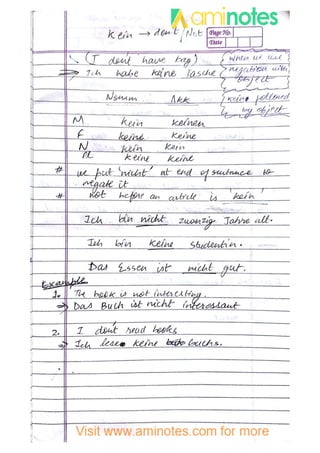 aminotes
kein → don't / Not
Page No.
Date
(I don't have bag)
when we use
⇒ Ich habe keine Tasche
negation with
object
Nomm Akk
keine followed
by object
M kein keinen
F keine keine
N kein kein
Pl keine keine
# we put 'nicht' at end of sentence to
negate it
* not before an article is 'kein'
Ich bin nicht zwanzig Jahre alt.
Ich bin keine Studentin.
Das Essen ist nicht gut.
Example
1. The book is not interesting.
⇒ Das Buch ist nicht interessant
2. I don't read books
⇒ Ich lese keine buchs.
Visit www.aminotes.com for more